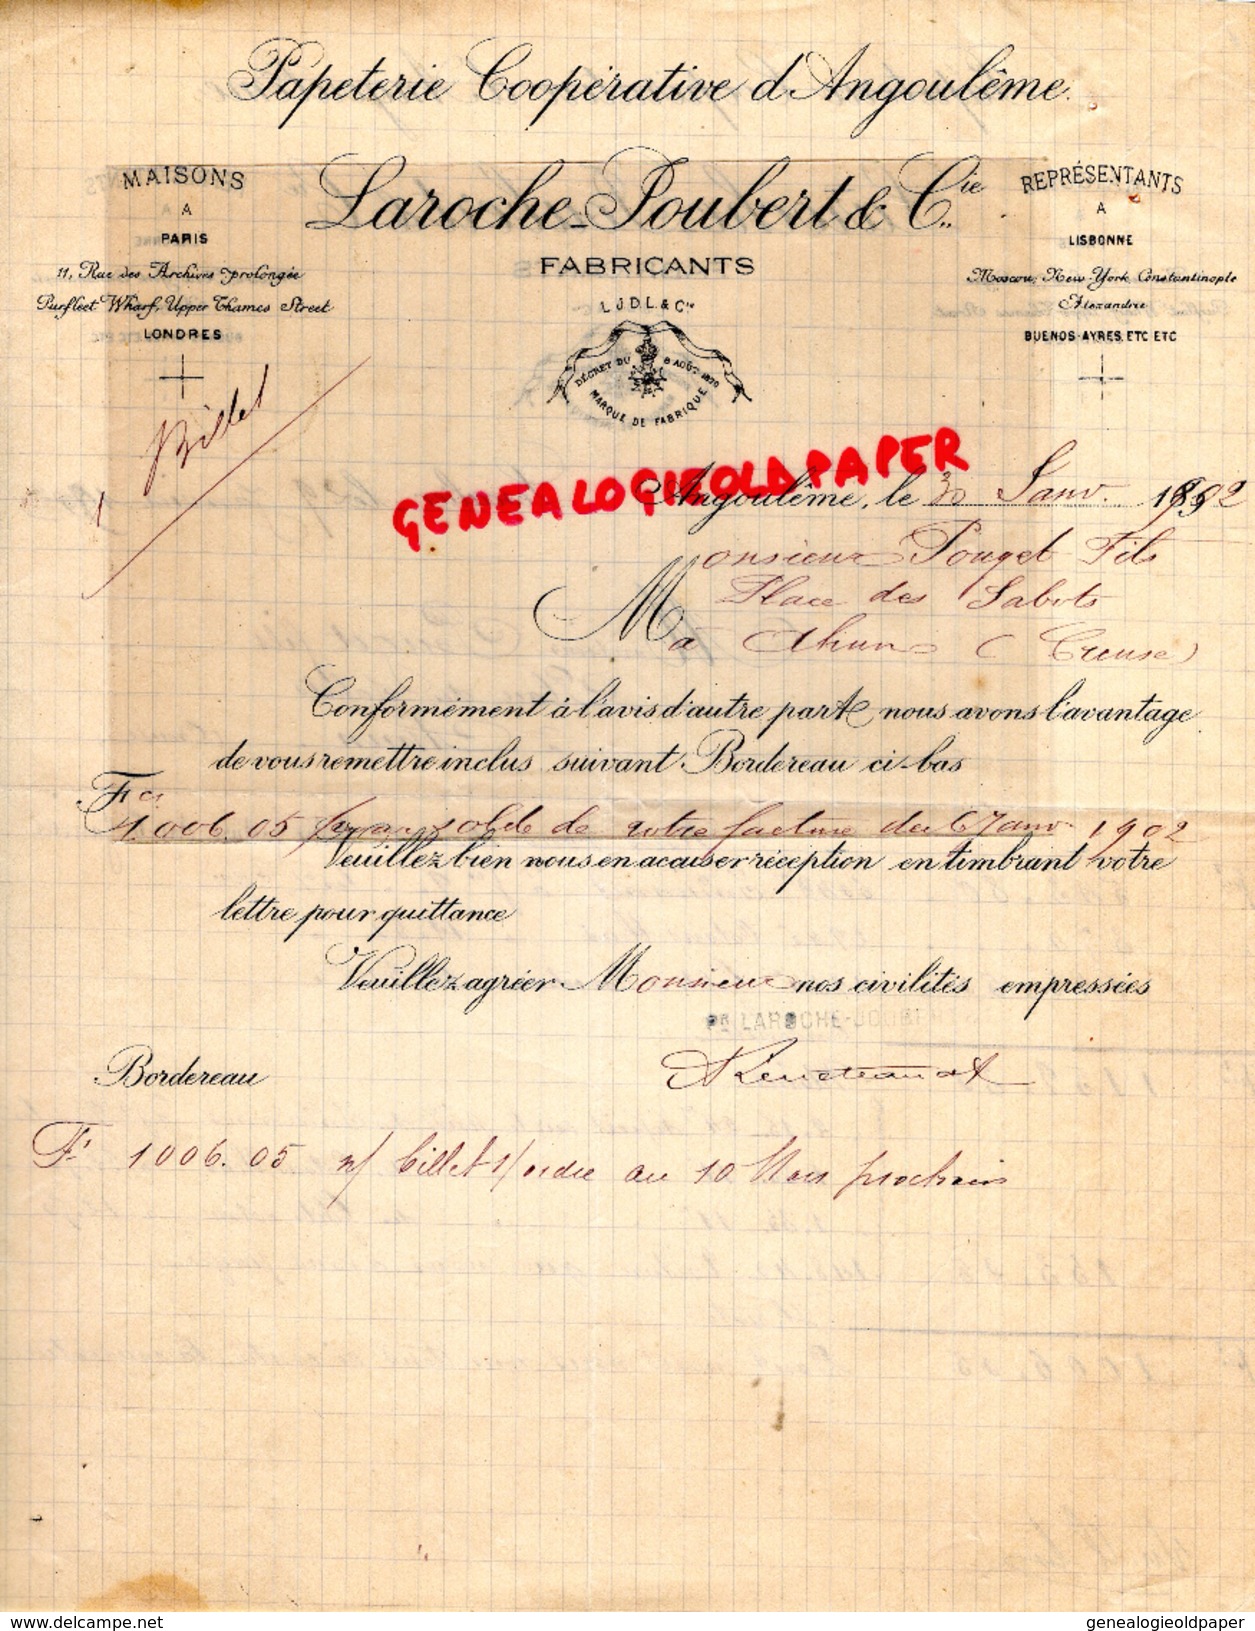 Papeterie Coopérative d'Angoulême.
MAISONS
A
PARIS
11, Rue des Archives prolongée
Purfleet Wharf, Upper Thames Street
LONDRES
Laroche-Joubert & Cie.
FABRICANTS
L J D L & Cie
DÉCRET DU 8 AOÛT 1890
MARQUE DE FABRIQUE
REPRÉSENTANTS
A
LISBONNE
Moscou, New-York, Constantinople
Alexandrie
BUENOS-AYRES, ETC ETC
1 Billet
GENEALOGIEOLDPAPER
Angoulême, le 30 Janv. 1902
Monsieur Pouget Fils
Place des Sabots
à Ahun (Creuse)
Conformément à l'avis d'autre part nous avons l'avantage
de vous remettre inclus suivant Bordereau ci-bas
Fcs
1.006.05 pour solde de votre facture du 6 Janv. 1902
Veuillez bien nous en accuser réception en timbrant votre
lettre pour quittance
Veuillez agréer Monsieur nos civilités empressées
Pn LAROCHE-JOUBERT
Bordereau
F 1006.05 n/ billet s/ ordre au 10 Mars prochain
delcampe.net
genealogieoldpaper